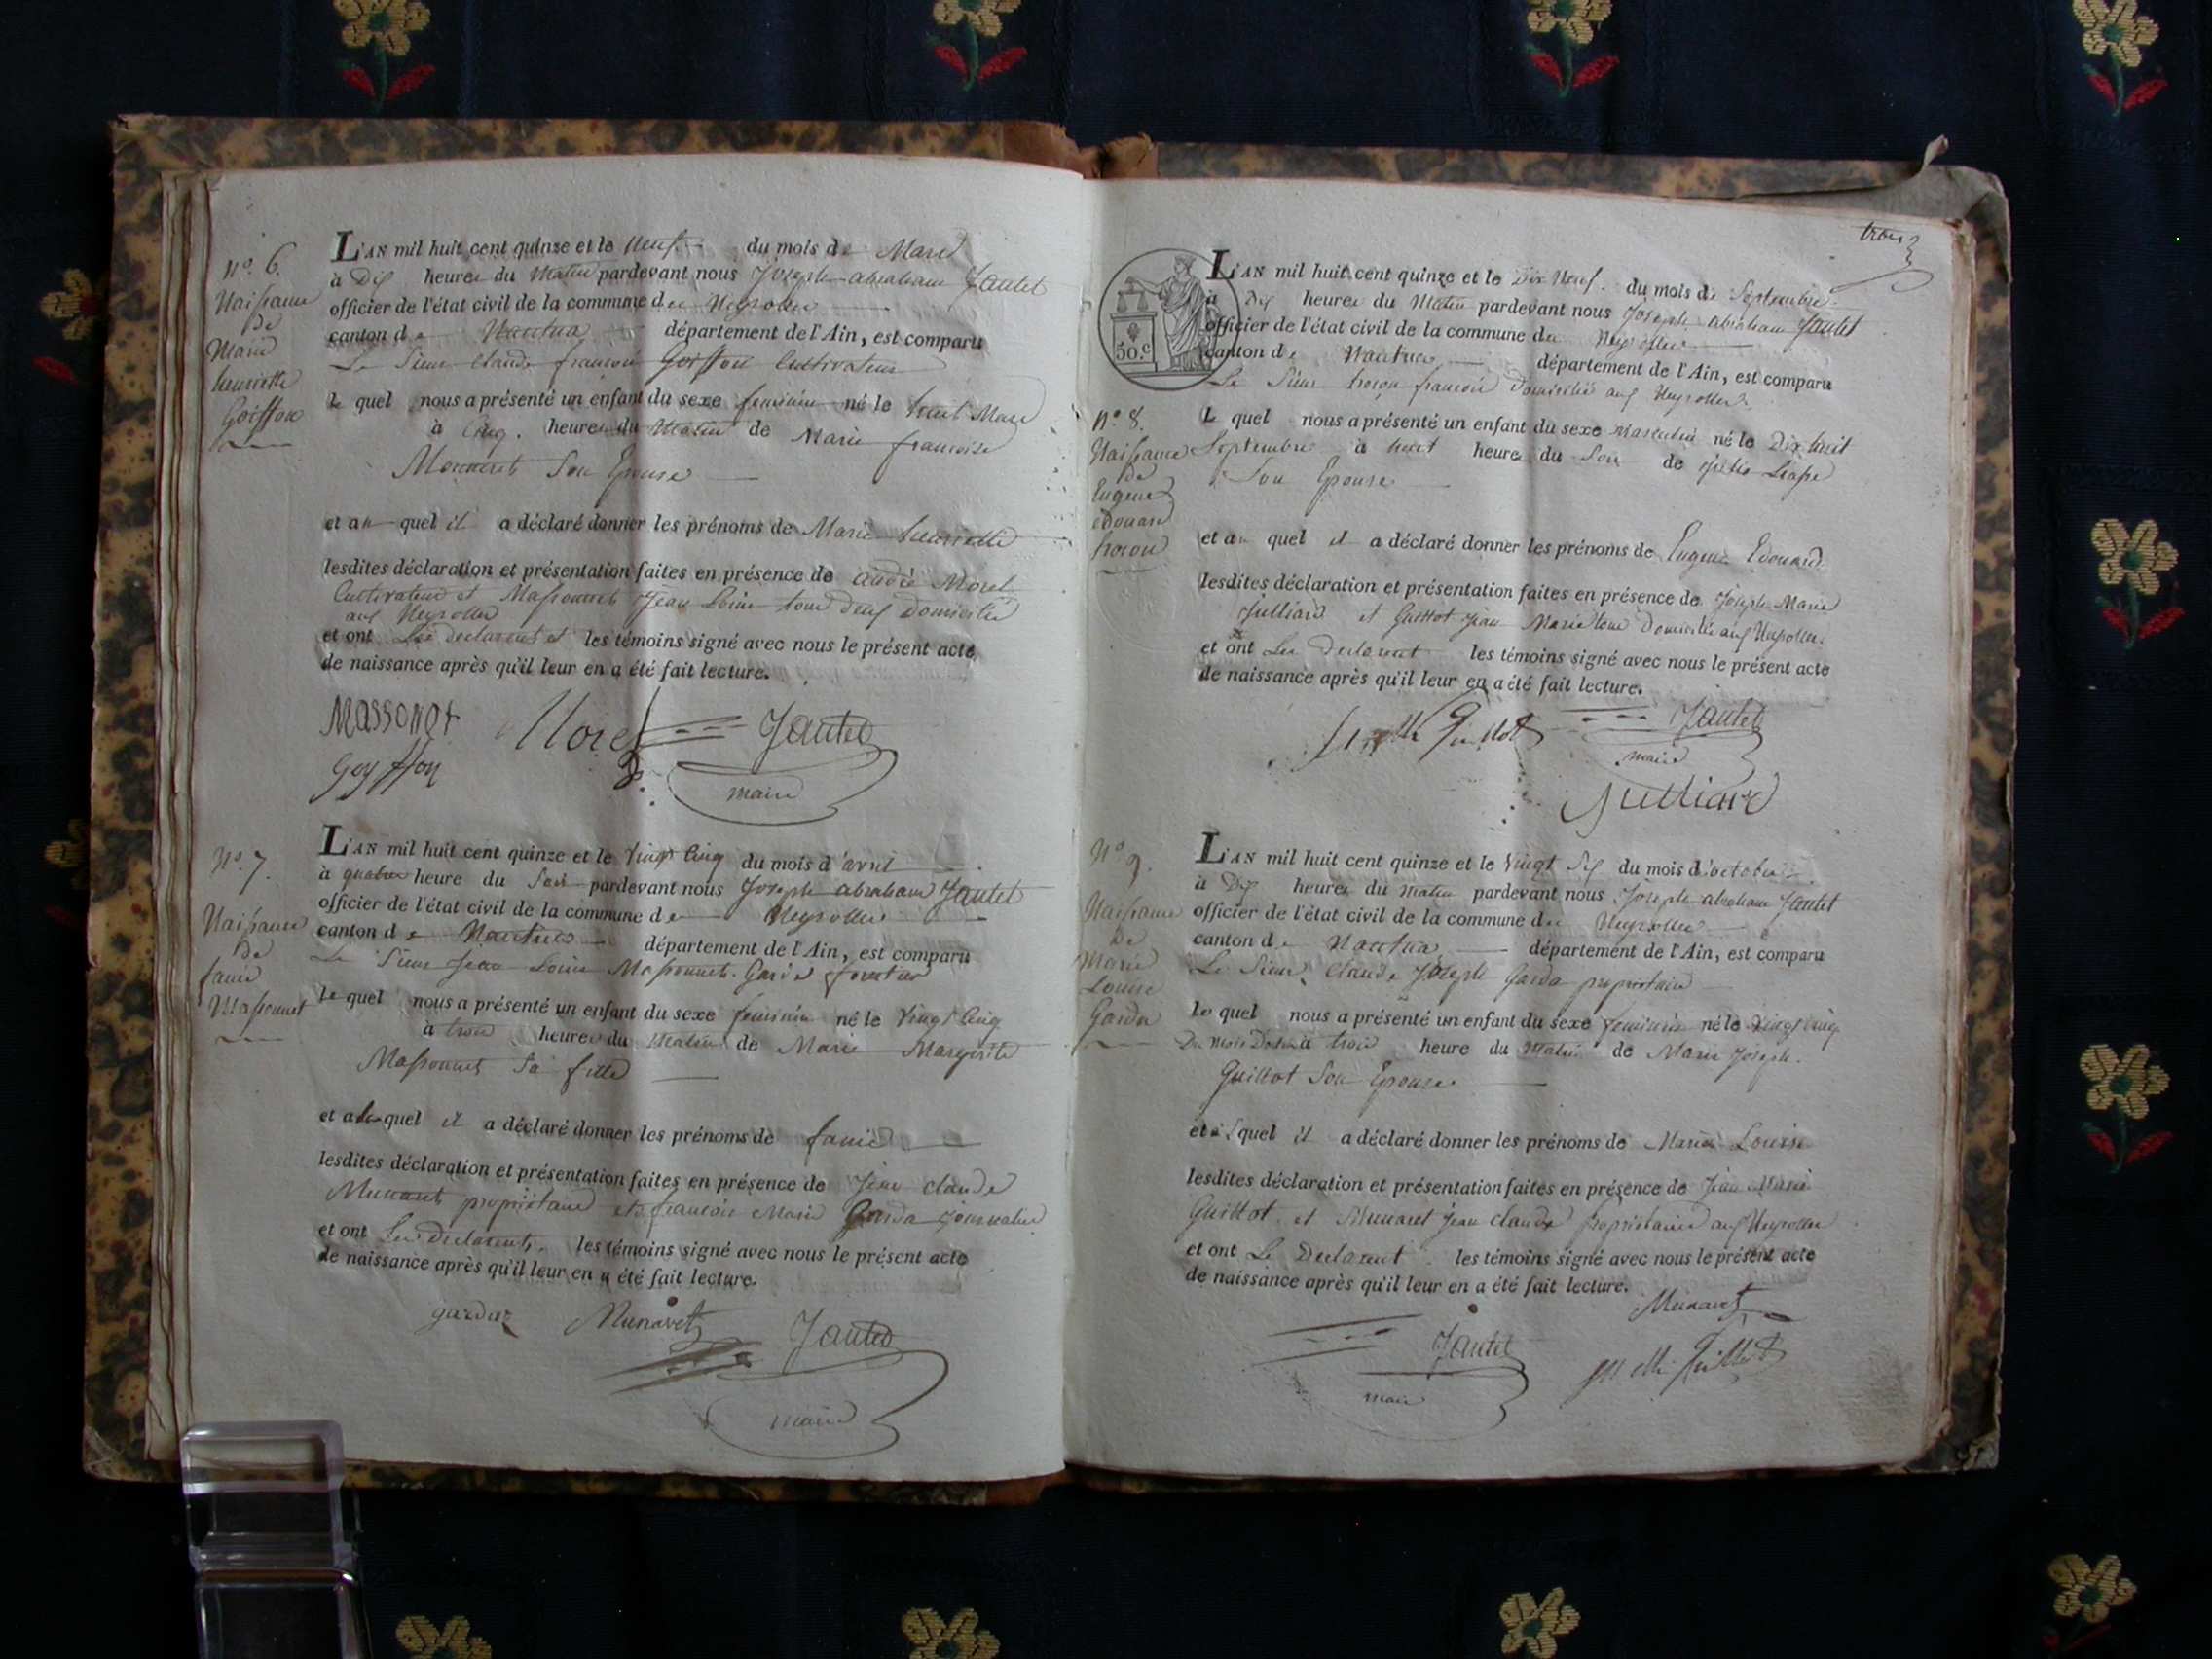 N.o 6.
Naissance
de
Marie
henriette
Goiffon
L'AN mil huit cent quinze et le Neuf du mois de Mars
à Dix heures du Matin pardevant nous Joseph abraham Jautet
officier de l'état civil de la commune des Neyrolles
canton de Nantua département de l'Ain, est comparu
Le Sieur Claude françois Goiffon Cultivateur
le quel nous a présenté un enfant du sexe feminin né le huit Mars
à Cinq heures du Matin de Marie françoise
son Epouse
et au quel il a déclaré donner les prénoms de Marie henriette
lesdites déclaration et présentation faites en présence de andré Morel
Cultivateur et Massonnet Jean Louis tous deux Domicilié
aux Neyrolles
et ont Les declarent et les témoins signé avec nous le présent acte
de naissance après qu'il leur en a été fait lecture.
Massonet Morel Jautet
goyffon maire
N.o 7.
Naissance
de
fanie
Massonnet
L'AN mil huit cent quinze et le vingt Cinq du mois d'avril
à quatre heure du Soir pardevant nous Joseph abraham Jautet
officier de l'état civil de la commune des Neyrolles
canton de Nantua département de l'Ain, est comparu
Le Sieur Jean Louis Massonnet Garde forestier
le quel nous a présenté un enfant du sexe feminin né le Vingt Cinq
à trois heures du Matin de Marie Margerite
Massonnet Sa fille
et a quel il a déclaré donner les prénoms de fanie
lesdites déclaration et présentation faites en présence de Jean claude
Munaret propriétaire et françois Marie Garda journalier
et ont Les declarents les témoins signé avec nous le présent acte
de naissance après qu'il leur en a été fait lecture.
garda Munaret Jautet
maire
trois
50.c
N.o 8.
Naissance
de
Eugene
edouard
L'AN mil huit cent quinze et le Dix Neuf du mois de Septembre
à Dix heures du Matin pardevant nous Joseph abraham Jautet
officier de l'état civil de la commune des Neyrolles
canton de Nantua département de l'Ain, est comparu
Le Sieur françois Domicilié aux Neyrolles
le quel nous a présenté un enfant du sexe Masculin né le Dix huit
Septembre à heure du Soir de
Son Epouse
et au quel il a déclaré donner les prénoms de Eugene Edouard
lesdites déclaration et présentation faites en présence de Joseph Marie
Julliard et Guillot Jean Marie tous Domicilié aux Neyrolles
et ont Les Declarent les témoins signé avec nous le présent acte
de naissance après qu'il leur en a été fait lecture.
Guillot Jautet
maire
Julliard
N.o 9.
Naissance
De
Marie
Louise
Garda
L'AN mil huit cent quinze et le Vingt Six du mois d'octobre
à Dix heures du Matin pardevant nous Joseph abraham Jautet
officier de l'état civil de la commune des Neyrolles
canton de Nantua département de l'Ain, est comparu
Le Sieur Claude Joseph Garda propriétaire
le quel nous a présenté un enfant du sexe feminin né le Vingt Cinq
Du Mois à trois heure du Matin de Marie Joseph
Guillot Son Epouse
et quel il a déclaré donner les prénoms de Marie Louise
lesdites déclaration et présentation faites en présence de Jean Marie
Guillot et Munaret Jean claude propriétaire aux Neyrolles
et ont Le Declarent les témoins signé avec nous le présent acte
de naissance après qu'il leur en a été fait lecture.
Munaret
Jautet Guillot
maire